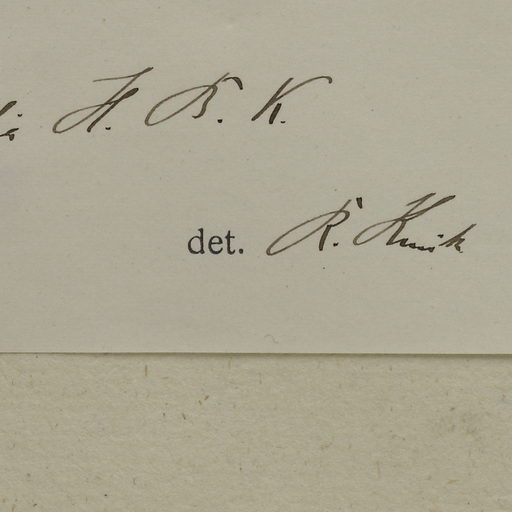 H. B. K.
det. R. Knuth